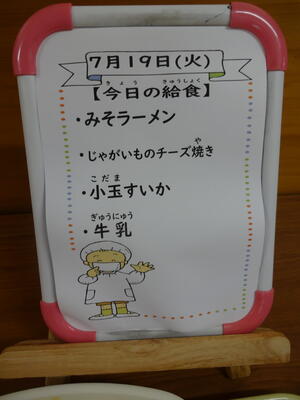 7月19日(火)
きょう きゅうしょく
【今日の給食】
・みそラーメン
や
・じゃがいものチーズ焼き
こだま
・小玉すいか
ぎゅうにゅう
・牛乳